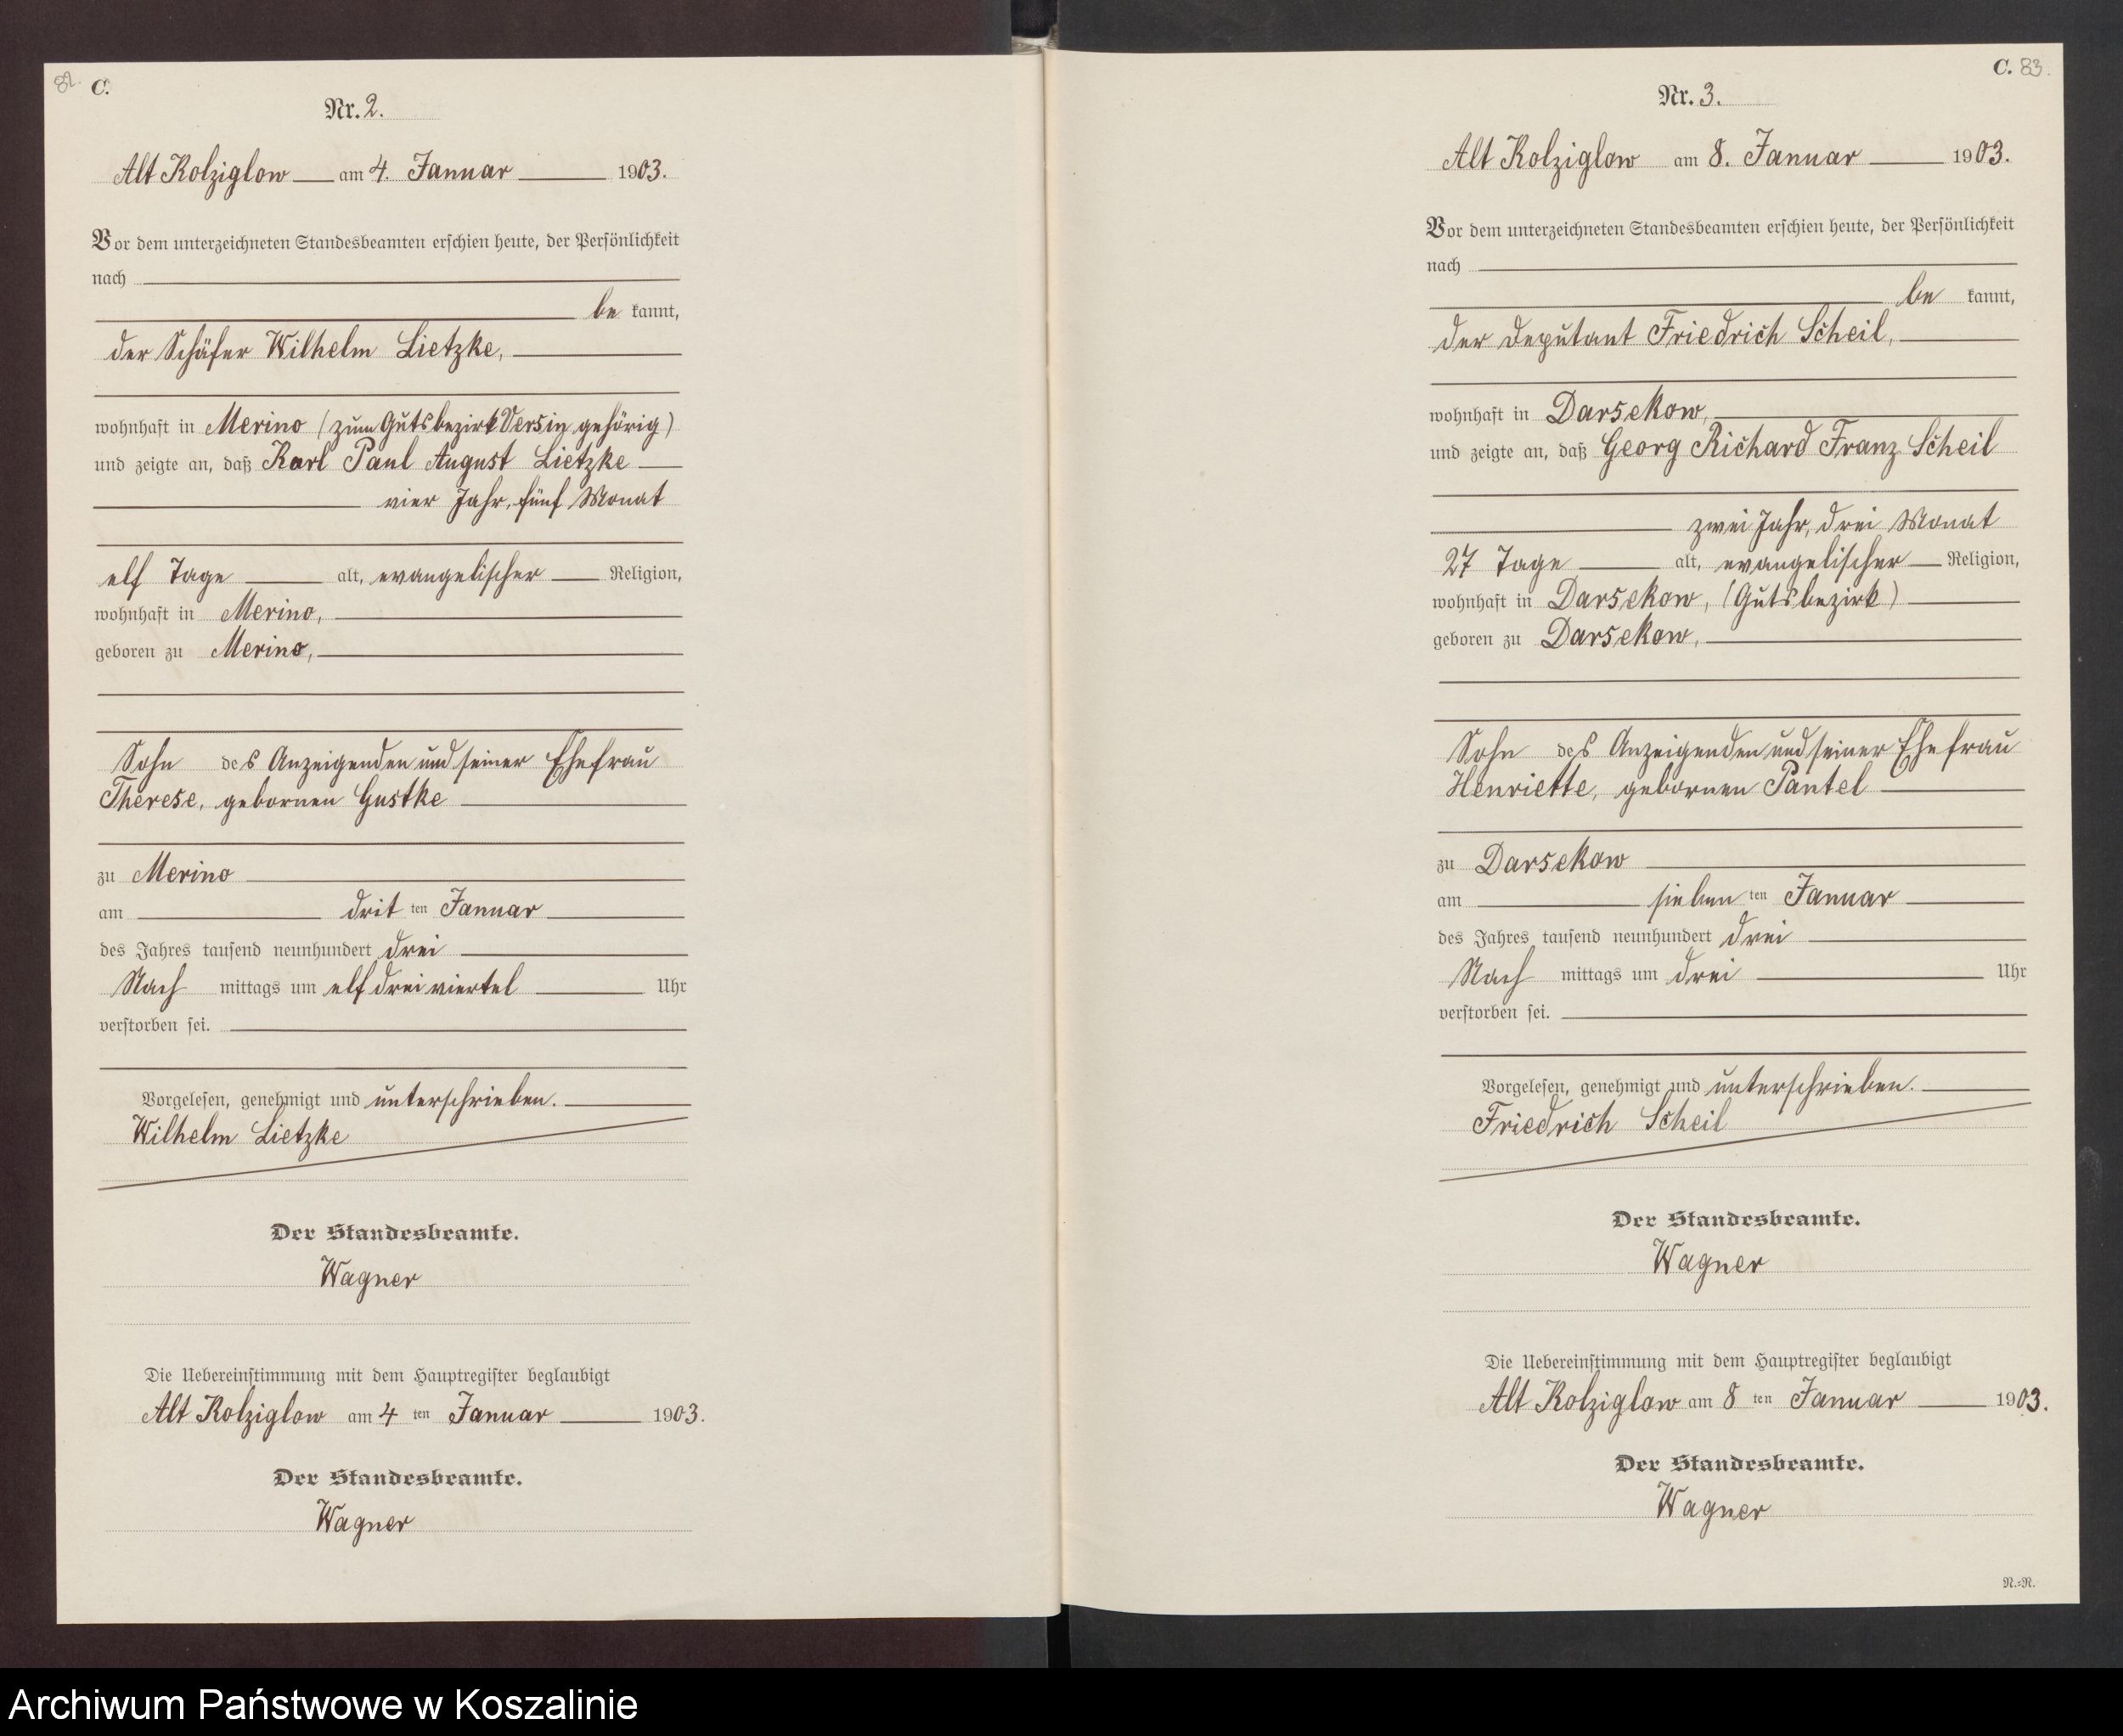 82. C.
Nr. 2.
Alt Kolziglow am 4. Januar 1903.
Vor dem unterzeichneten Standesbeamten erschien heute, der Persönlichkeit
nach
be kannt,
der Schäfer Wilhelm Lietzke,
wohnhaft in Merino (zum Gutsbezirk Versin gehörig)
und zeigte an, daß Karl Paul August Lietzke
vier Jahr, fünf Monat
elf Tage alt, evangelischer Religion,
wohnhaft in Merino,
geboren zu Merino,
Sohn des Anzeigenden und seiner Ehefrau
Therese, gebornen Gustke
zu Merino
am drit ten Januar
des Jahres tausend neunhundert drei
Nach mittags um elf dreiviertel Uhr
verstorben sei.
Vorgelesen, genehmigt und unterschrieben.
Wilhelm Lietzke
Der Standesbeamte.
Wagner
Die Uebereinstimmung mit dem Hauptregister beglaubigt
Alt Kolziglow am 4 ten Januar 1903.
Der Standesbeamte.
Wagner
C. 83.
Nr. 3.
Alt Kolziglow am 8. Januar 1903.
Vor dem unterzeichneten Standesbeamten erschien heute, der Persönlichkeit
nach
be kannt,
der Deputant Friedrich Scheil,
wohnhaft in Darsekow,
und zeigte an, daß Georg Richard Franz Scheil
zwei Jahr, drei Monat
27 Tage alt, evangelischer Religion,
wohnhaft in Darsekow, (Gutsbezirk)
geboren zu Darsekow,
Sohn des Anzeigenden und seiner Ehefrau
Henriette, gebornen Pantel
zu Darsekow
am sieben ten Januar
des Jahres tausend neunhundert drei
Nach mittags um drei Uhr
verstorben sei.
Vorgelesen, genehmigt und unterschrieben.
Friedrich Scheil
Der Standesbeamte.
Wagner
Die Uebereinstimmung mit dem Hauptregister beglaubigt
Alt Kolziglow am 8 ten Januar 1903.
Der Standesbeamte.
Wagner
N.=N.
Archiwum Państwowe w Koszalinie